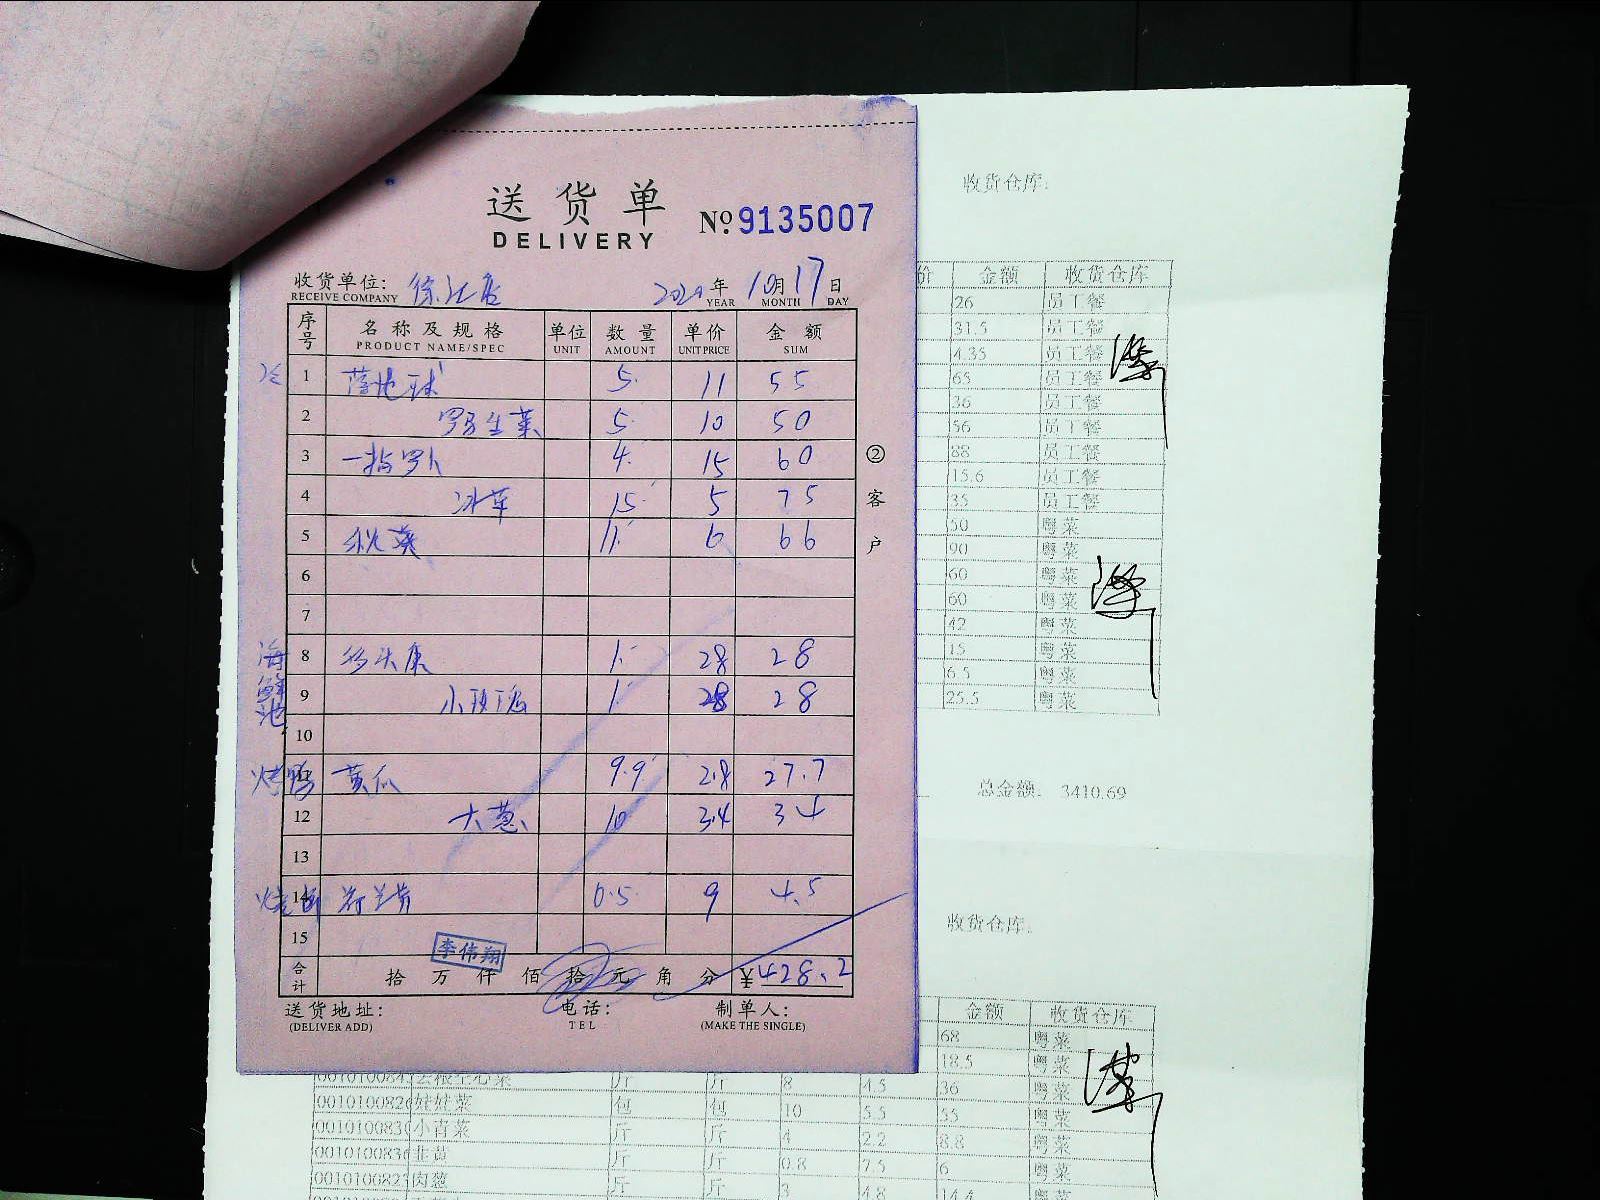 送货单
DELIVERY
№ 9135007
收货单位: 徐汇店 2020年 10月 17日
RECEIVE COMPANY YEAR MONTH DAY
序号 名称及规格 单位 数量 单价 金额
PRODUCT NAME/SPEC UNIT AMOUNT UNIT PRICE SUM
1 5 11 55
2 罗马生菜 5 10 50
3 一指罗卜 4 15 60
4 冰草 15 5 75
5 秋葵 11 6 66
6
7
海鲜池
8 28 28
9 小玫瑰 1 28 28
10
烤鸭 黄瓜 9.9 2.8 27.7
12 大葱 10 3.4 34
13
14 荷兰芹 0.5 9 4.5
15
李伟翔
合计 拾 万 仟 佰 拾 元 角 分 ¥428.2
送货地址: 电话: 制单人:
(DELIVER ADD) TEL (MAKE THE SINGLE)
②客户
收货仓库:
价 金额 收货仓库
26 员工餐
31.5 员工餐
4.35 员工餐
65 员工餐
36 员工餐
56 员工餐
88 员工餐
15.6 员工餐
35 员工餐
50 粤菜
90 粤菜
60 粤菜
60 粤菜
42 粤菜
15 粤菜
6.5 粤菜
25.5 粤菜
总金额: 3410.69
收货仓库:
金额 收货仓库
68 粤菜
18.5 粤菜
斤 斤 8 4.5 36 粤菜
娃娃菜 包 包 10 5.5 55 粤菜
小青菜 斤 斤 4 2.2 8.8 粤菜
韭黄 斤 斤 0.8 7.5 6 粤菜
肉葱 斤 斤 3 4.8 14.4 粤菜